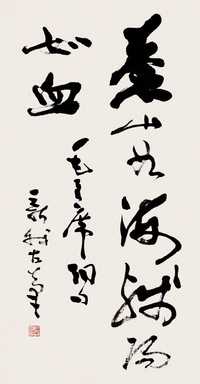 蒼山如海殘陽
如血
毛主席詞句
新我左筆